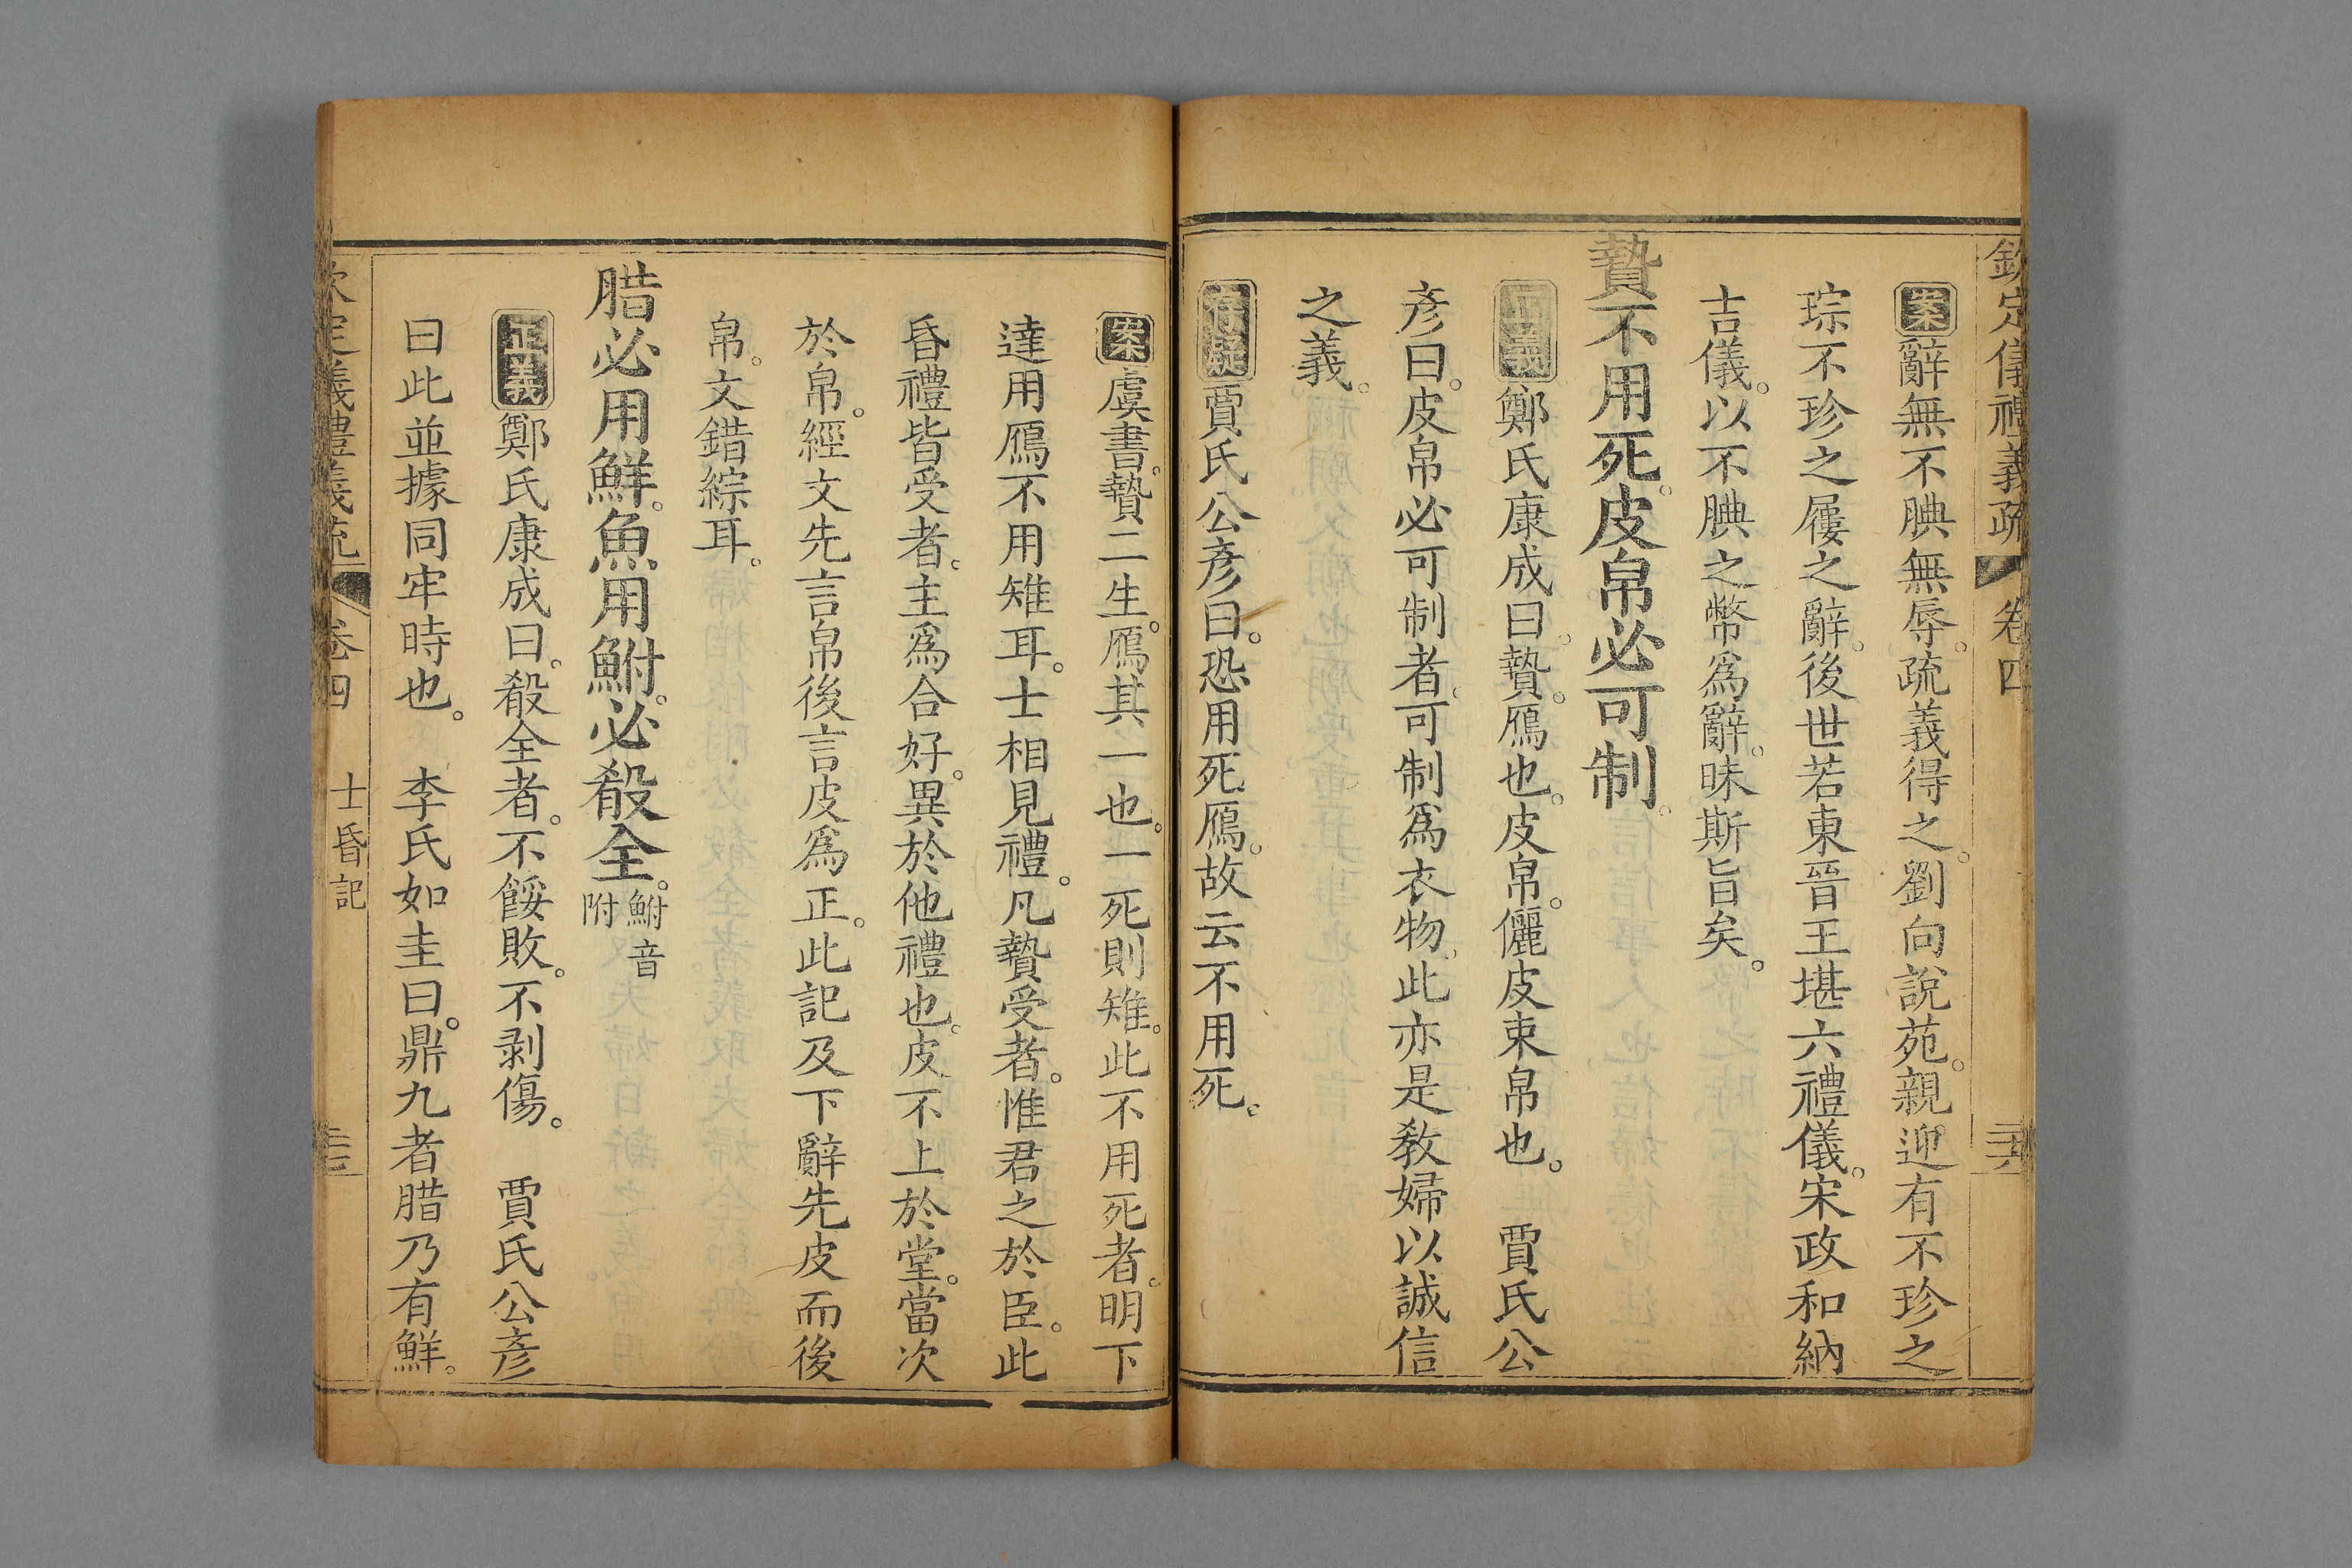 欽定儀禮義疏 卷四
案辭無不腆無辱。疏義得之。劉向說苑。親迎有不珍之
琮不珍之屨之辭。後世若東晉王堪六禮儀。宋政和納
吉儀。以不腆之幣爲辭。昧斯旨矣。
贄不用死。皮帛必可制。
正義鄭氏康成曰。贄。鴈也。皮帛。儷皮束帛也。 賈氏公
彥曰。皮帛必可制者。可制爲衣物。此亦是教婦以誠信
之義。
存疑賈氏公彥曰。恐用死鴈。故云不用死。
案虞書。贄二生。鴈其一也。一死則雉。此不用死者。明下
達用鴈不用雉耳。士相見禮。凡贄受者。惟君之於臣。此
昏禮皆受者。主爲合好。異於他禮也。皮不上於堂。當次
於帛。經文先言帛後言皮爲正。此記及下辭先皮而後
帛。文錯綜耳。
腊必用鮮。魚用鮒。必殽全。鮒音附
正義鄭氏康成曰。殽全者。不餒敗。不剥傷。 賈氏公彥
曰此並據同牢時也。 李氏如圭曰。鼎九者腊乃有鮮。
欽定儀禮義疏 卷四 士昏記